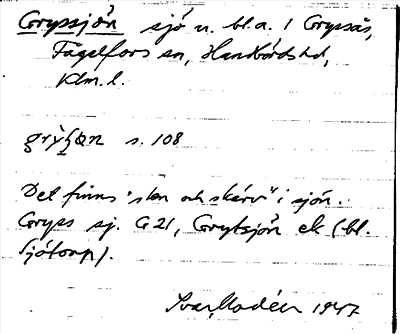 Gryssjön sjö n. bl.a. i Gryssås,
Fågelfors sn, Handbörds hd,
Klm. l.
s. 108
Det finns "sten och skärv" i sjön.
Gryss sj. G 21, Grytsjön ek (bl.
Sjötorp).
Ivar Modéer 1947